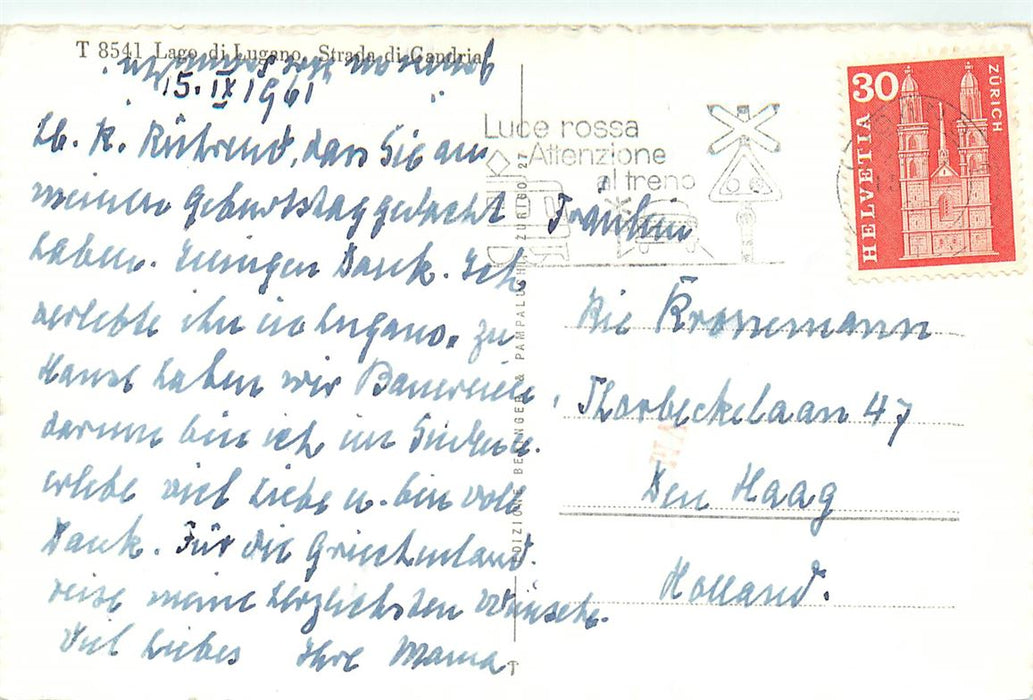 T 8541 Lago di Lugano. Strada di Gandria
15. IX 1961
Lb. K. Rührend, dass Sie am
meinen Geburtstag gedacht
haben. Innigen Dank. Ich
verlebte ihn in Lugano. Zu
Hause haben wir
darum bin ich im Süden.
erlebe viel Liebe u. bin voll
Dank. Für die Griechenland.
reise meine herzlichsten Wünsche.
Viel Liebes Ihre Mama
EDIZIONE BERINGER & PAMPALUCHI ZURIGO 27
Luce rossa
Attenzione
al treno
HELVETIA
30
ZÜRICH
VIII
Fräulein
Rie Kronemann
Thorbeckelaan 47
Den Haag
Holland.